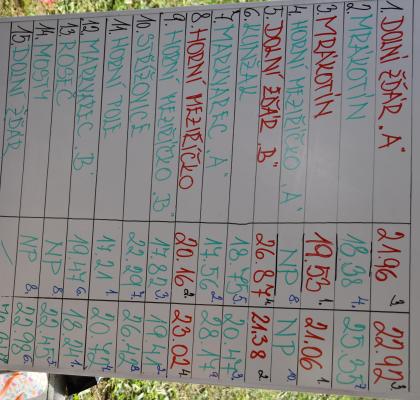 1. DOLNÍ ŽĎÁR "A" 21.96 3. 22.92 3
2. MRÁKOTÍN 18.38 4. 25.35 7
3. MRÁKOTÍN 19.53 1. 21.06 1.
4. HORNÍ MEZIŘÍČKO "A" NP 8 NP 10
5. DOLNÍ ŽĎÁR "B" 26.87 4. 21.38 2
6. KUNŽAK 18.75 5. 20.47 3
7. MARKVAREC "A" 17.56 2. 28.17 9
8. HORNÍ MEZIŘÍČKO 20.16 2. 23.02 4
9. HORNÍ MEZIŘÍČKO "B" 17.82 3. 19.41 2
10. STŘÍŽOVICE 22.20 7. 26.12 8
11. HORNÍ POLE 17.21 1 20.72 4
12. MARKVAREC "B" 19.47 6 18.21 1
13. ROSEČ NP 8 22.45 5
14. MOSTY NP 8. 22.98 6
15. DOLNÍ ŽĎÁR /